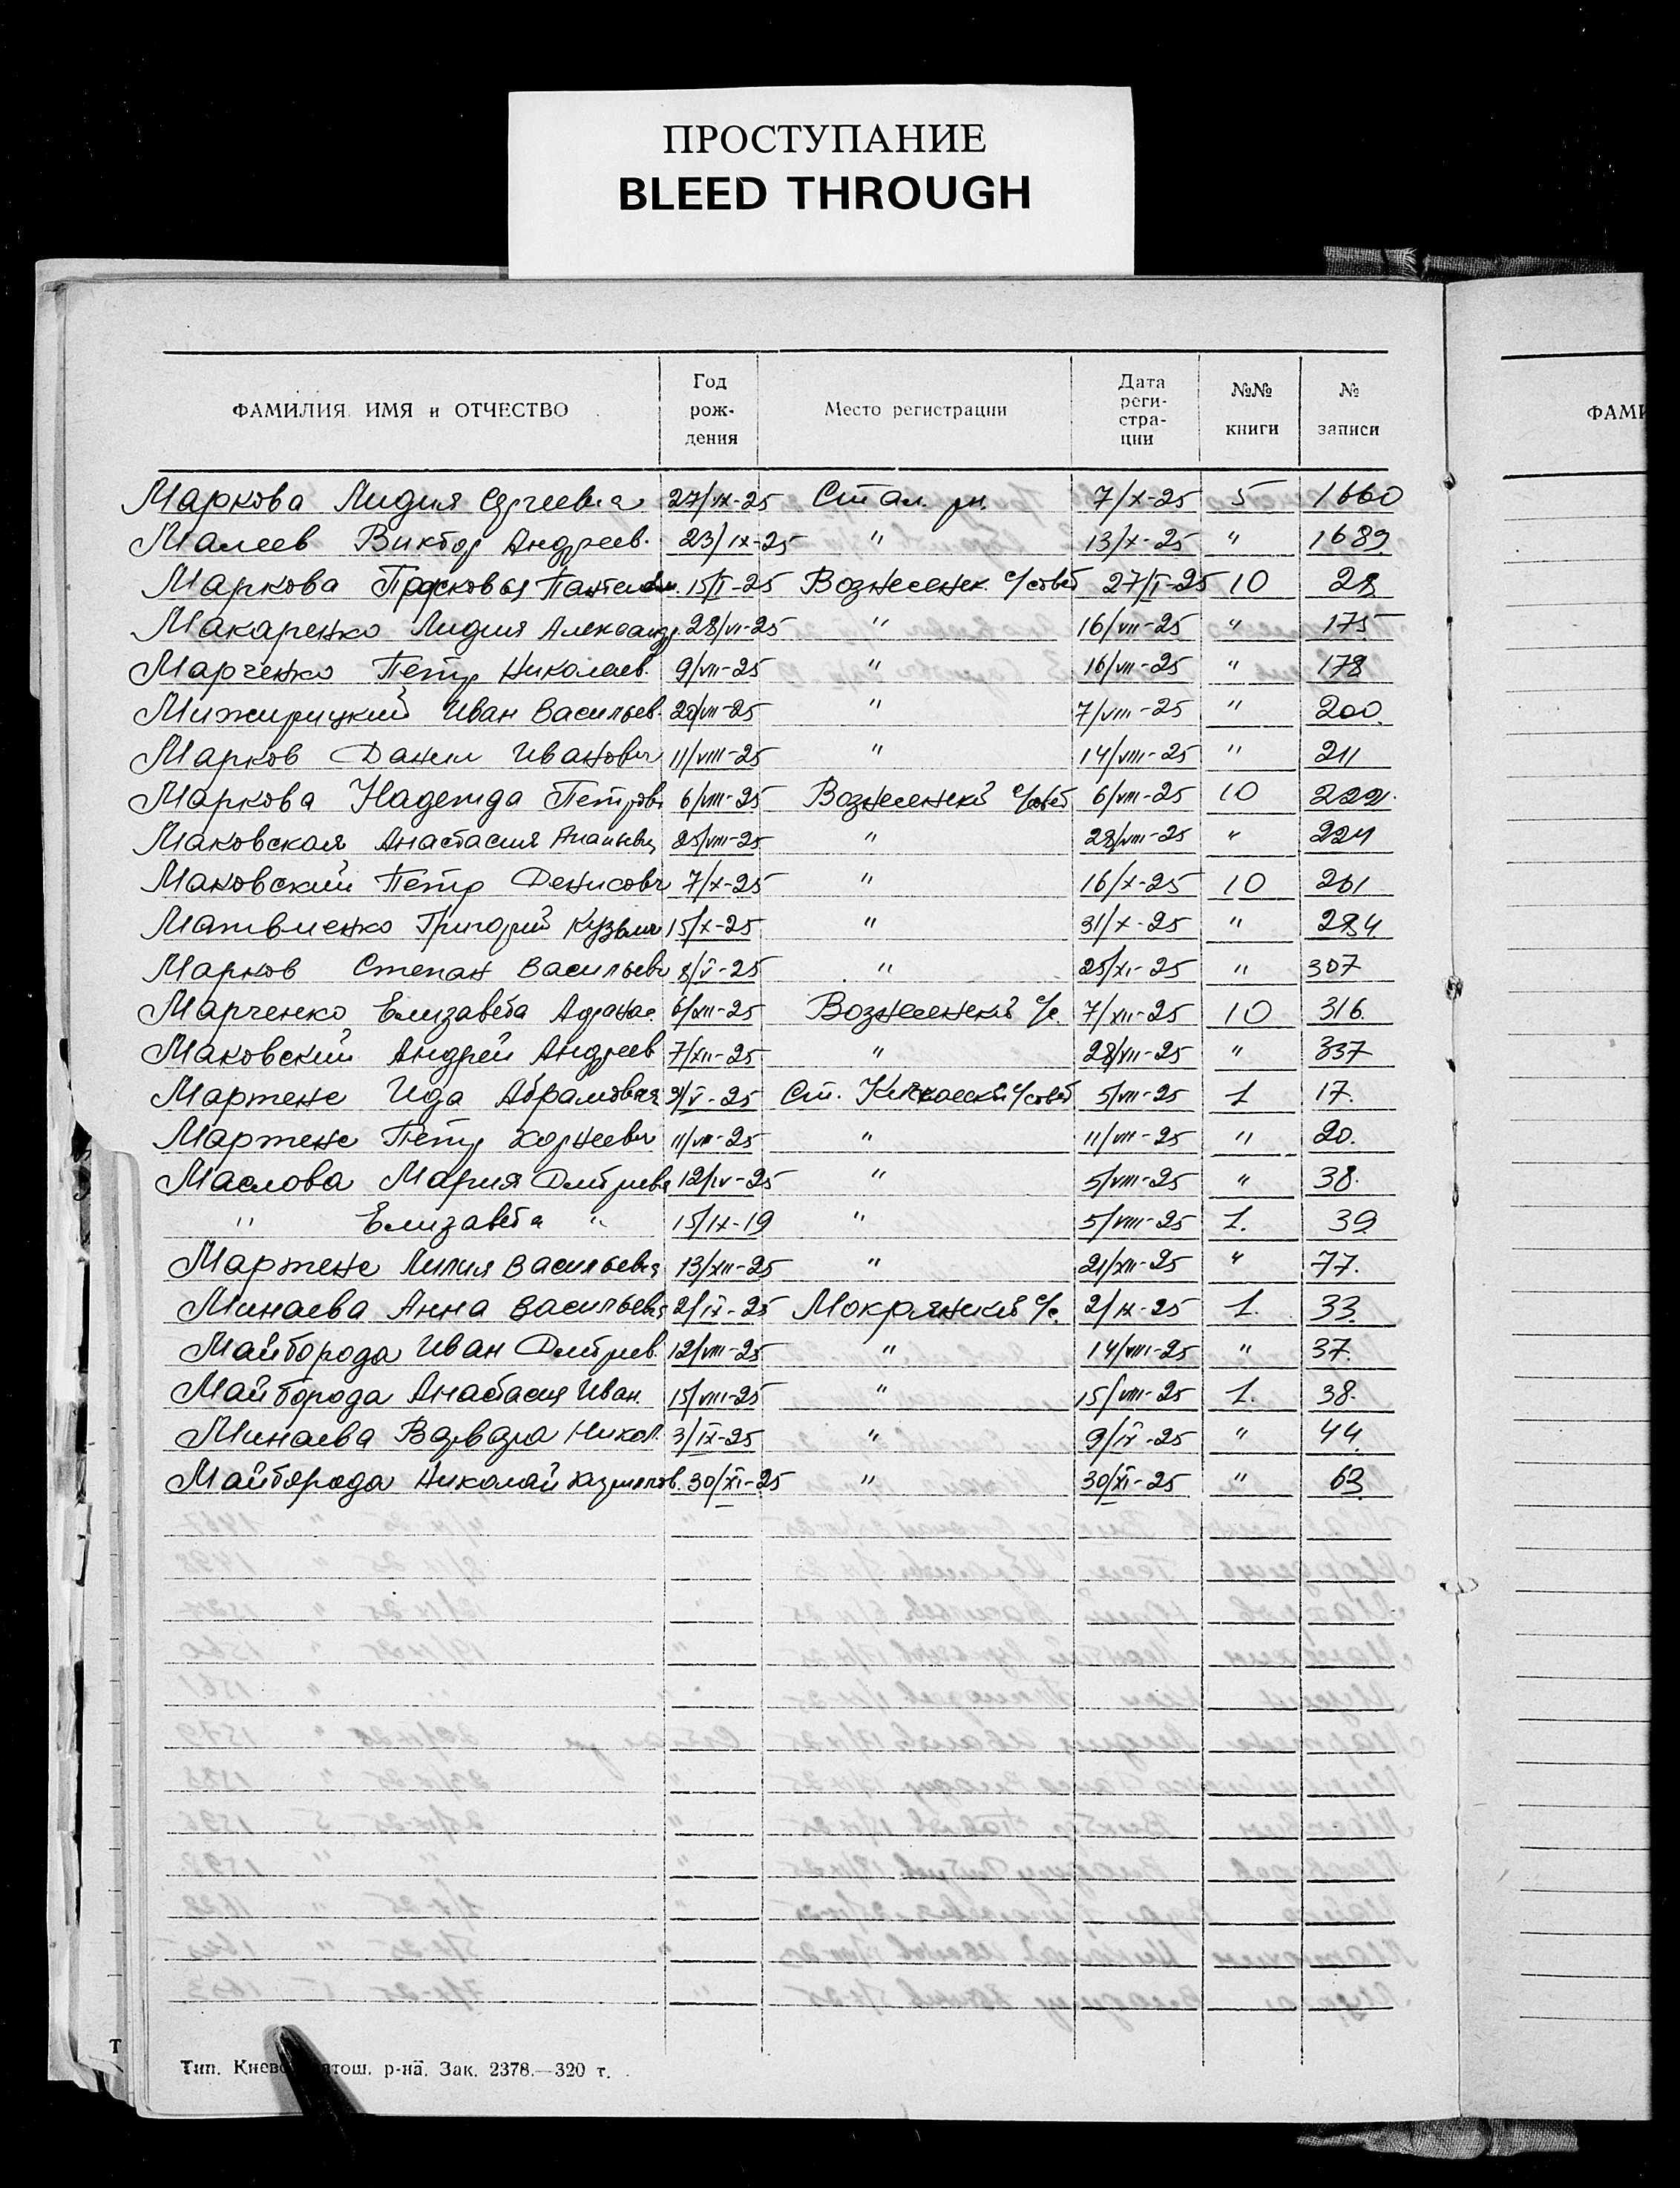 ПРОСТУПАНИЕ
BLEED THROUGH
ФАМИЛИЯ ИМЯ и ОТЧЕСТВО Год рож- дения Место регистрации Дата реги- стра- ции №№ книги № записи
ФАМИ
Маркова Лидия Сергеевна 27/IX-25 Стал. рн. 7/X-25 5 1660
Малеев Виктор Андреев. 23/IX-25 " 13/X-25 " 1689
Маркова Прасковья 15/I-25 Вознесенск. с/совет 27/I-25 10 28
Макаренко Лидия Александр. 28/VI-25 " 16/VII-25 " 175
Марченко Петр Николаев. 9/VII-25 " 16/VII-25 " 178
Мижирицкий Иван Васильев. 28/VII-25 " 7/VIII-25 " 200
Марков Данил Иванович 11/VIII-25 " 14/VIII-25 " 211
Маркова Надежда Петровн 6/VIII-25 Вознесенский с/совет 6/VIII-25 10 222.
Маковская Анастасия 25/VIII-25 " 28/VIII-25 " 224
Маковский Петр Денисович 7/X-25 " 16/X-25 10 261
Матвиенко Григорий Кузьмич 15/X-25 " 31/X-25 " 284
Марков Степан Васильевич 8/V-25 " 25/XI-25 " 307
Марченко Елизавета Афанас. 6/XII-25 Вознесенский с/с. 7/XII-25 10 316.
Маковский Андрей Андреев 7/XII-25 " 28/VII-25 " 337
Мартенс Ида Абрамовна 9/V-25 Ст. с/совет 5/VIII-25 1 17.
Мартенс Петр Корнеевич 11/VII-25 " 11/VIII-25 " 20.
Маслова Мария Дмитриевн 12/IV-25 " 5/VIII-25 " 38.
" Елизавета " 15/IX-19 " 5/VIII-25 1. 39
Мартенс Лилия Васильевна 13/XII-25 " 21/XII-25 " 77.
Минаева Анна Васильевн 2/IX-25 Мокрянский с/с. 2/IX-25 1. 33.
Майборода Иван Дмитриев. 12/VIII-25 " 14/VIII-25 " 37.
Майборода Анастасия Иван. 15/VIII-25 " 15/VIII-25 1. 38.
Минаева Варвара Никол. 3/IX-25 " 9/IX-25 " 44
Майборода Николай 30/XI-25 " 30/XI-25 " 63
Т
Тип. р-на. Зак. 2378.—320 т.